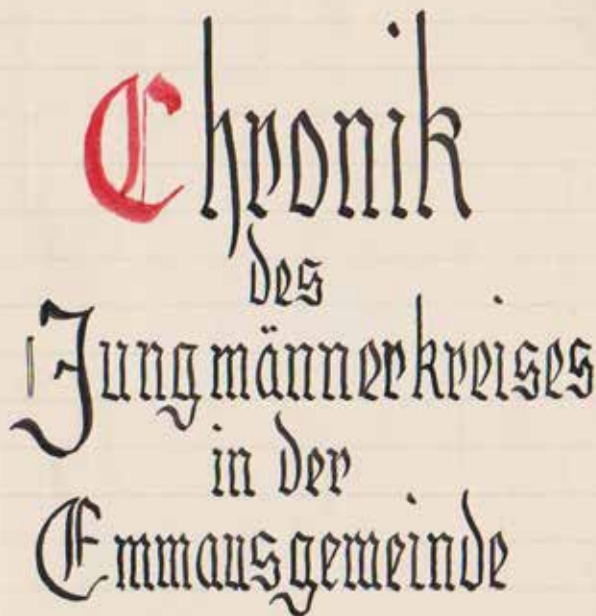 Chronik
des
Jungmännerkreises
in der
Emmausgemeinde